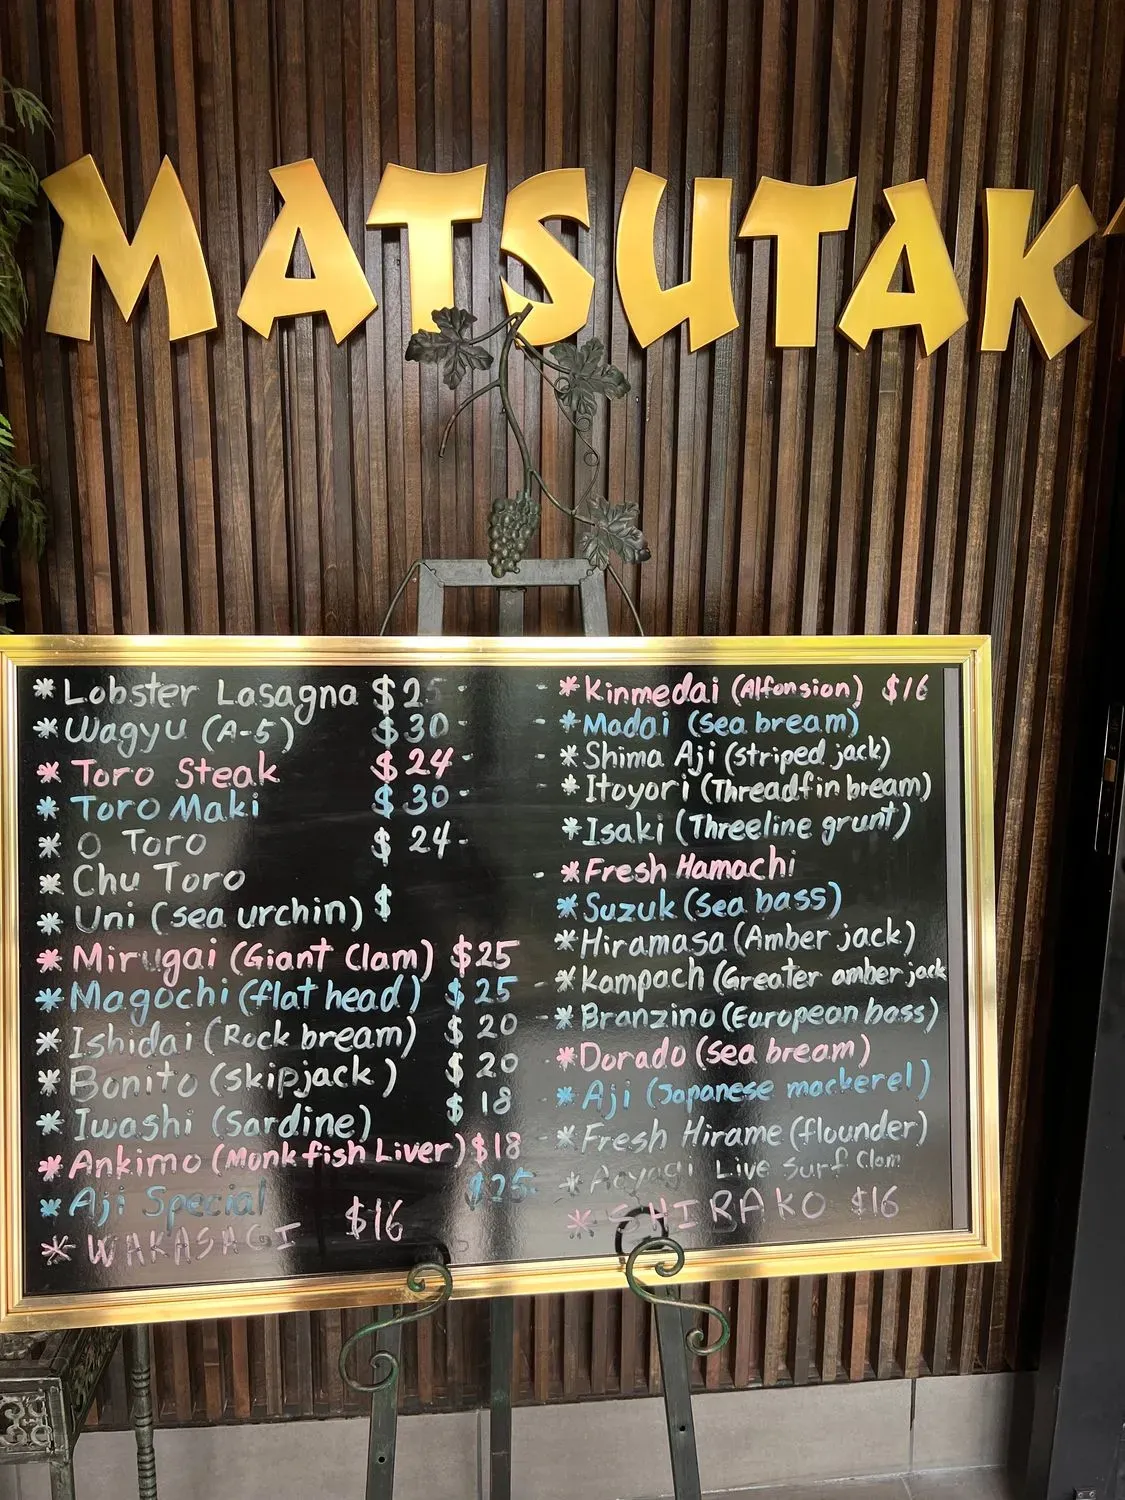 MATSUTAK
* Lobster Lasagna $25-
* Wagyu (A-5) $30-
* Toro Steak $24-
* Toro Maki $30-
* O Toro $24-
* Chu Toro
* Uni (sea urchin) $
* Mirugai (Giant Clam) $25
* Magochi (flat head) $25-
* Ishidai (Rock bream) $20-
* Bonito (skipjack) $20
* Iwashi (Sardine) $18
* Ankimo (Monkfish Liver) $18-
* Aji Special $25-
* WAKASAGI $16
* Kinmedai (Alfonsion) $16
- * Madai (sea bream)
* Shima Aji (striped jack)
- * Itoyori (Threadfin bream)
* Isaki (Threeline grunt)
- * Fresh Hamachi
* Suzuk (sea bass)
* Hiramasa (Amber jack)
* Kampach (Greater amber jack
* Branzino (European bass)
* Dorado (sea bream)
* Aji (Japanese mackerel)
* Fresh Hirame (flounder)
* Aoyagi Live Surf Clam
* SHIRAKO $16